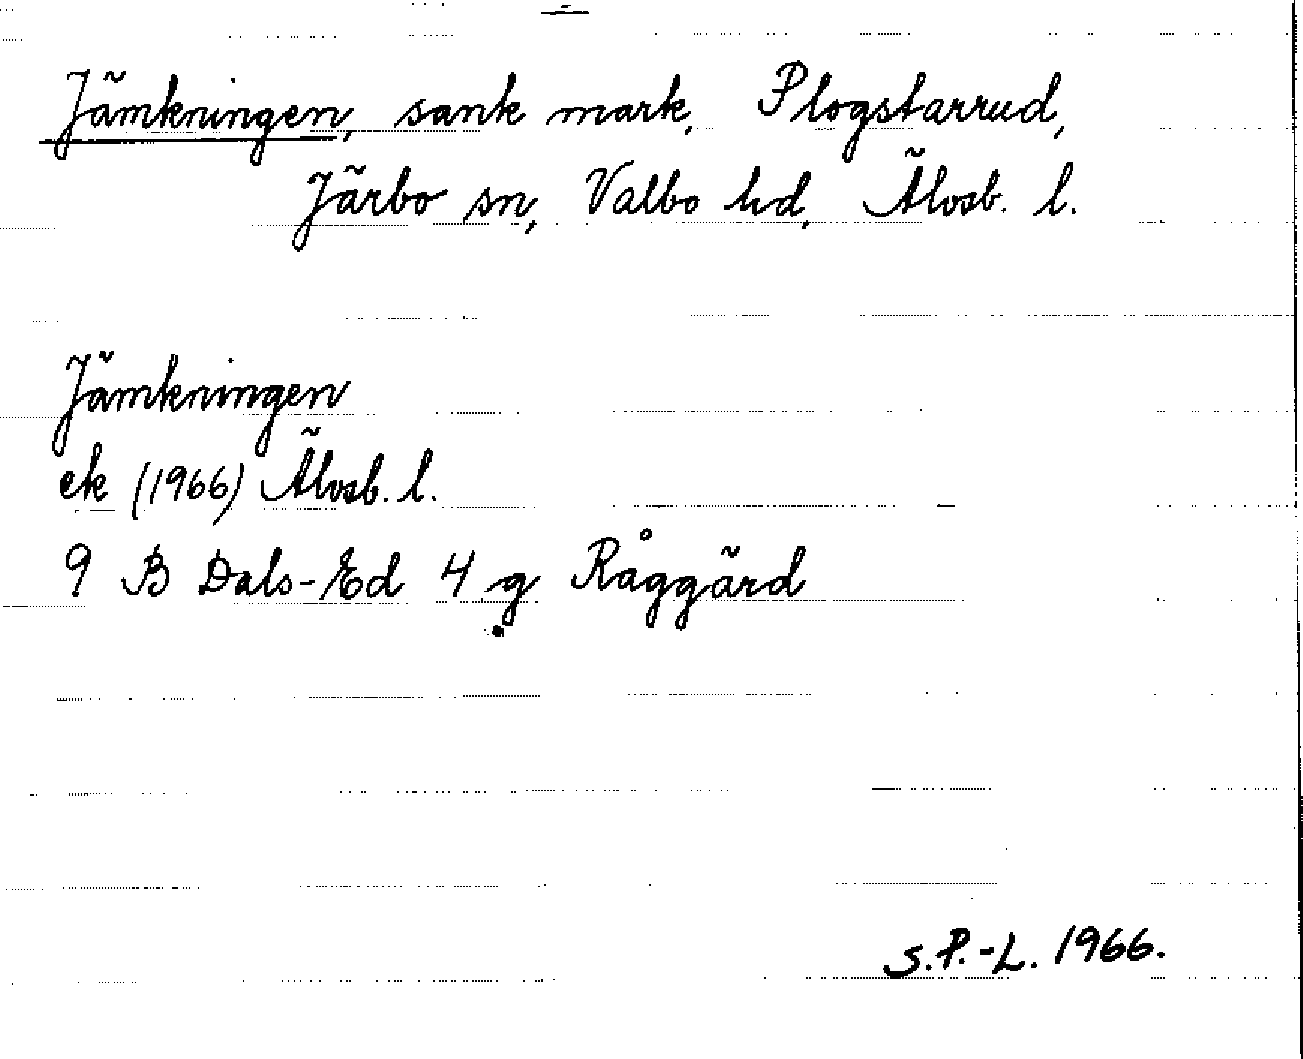 Jämkningen, sank mark, Plogstarrud,
Järbo sn, Valbo hd, Älvsb. l.
Jämkningen
ek (1966) Älvsb. l.
9 B Dals-Ed 4 g Råggärd
S.P.-L. 1966.